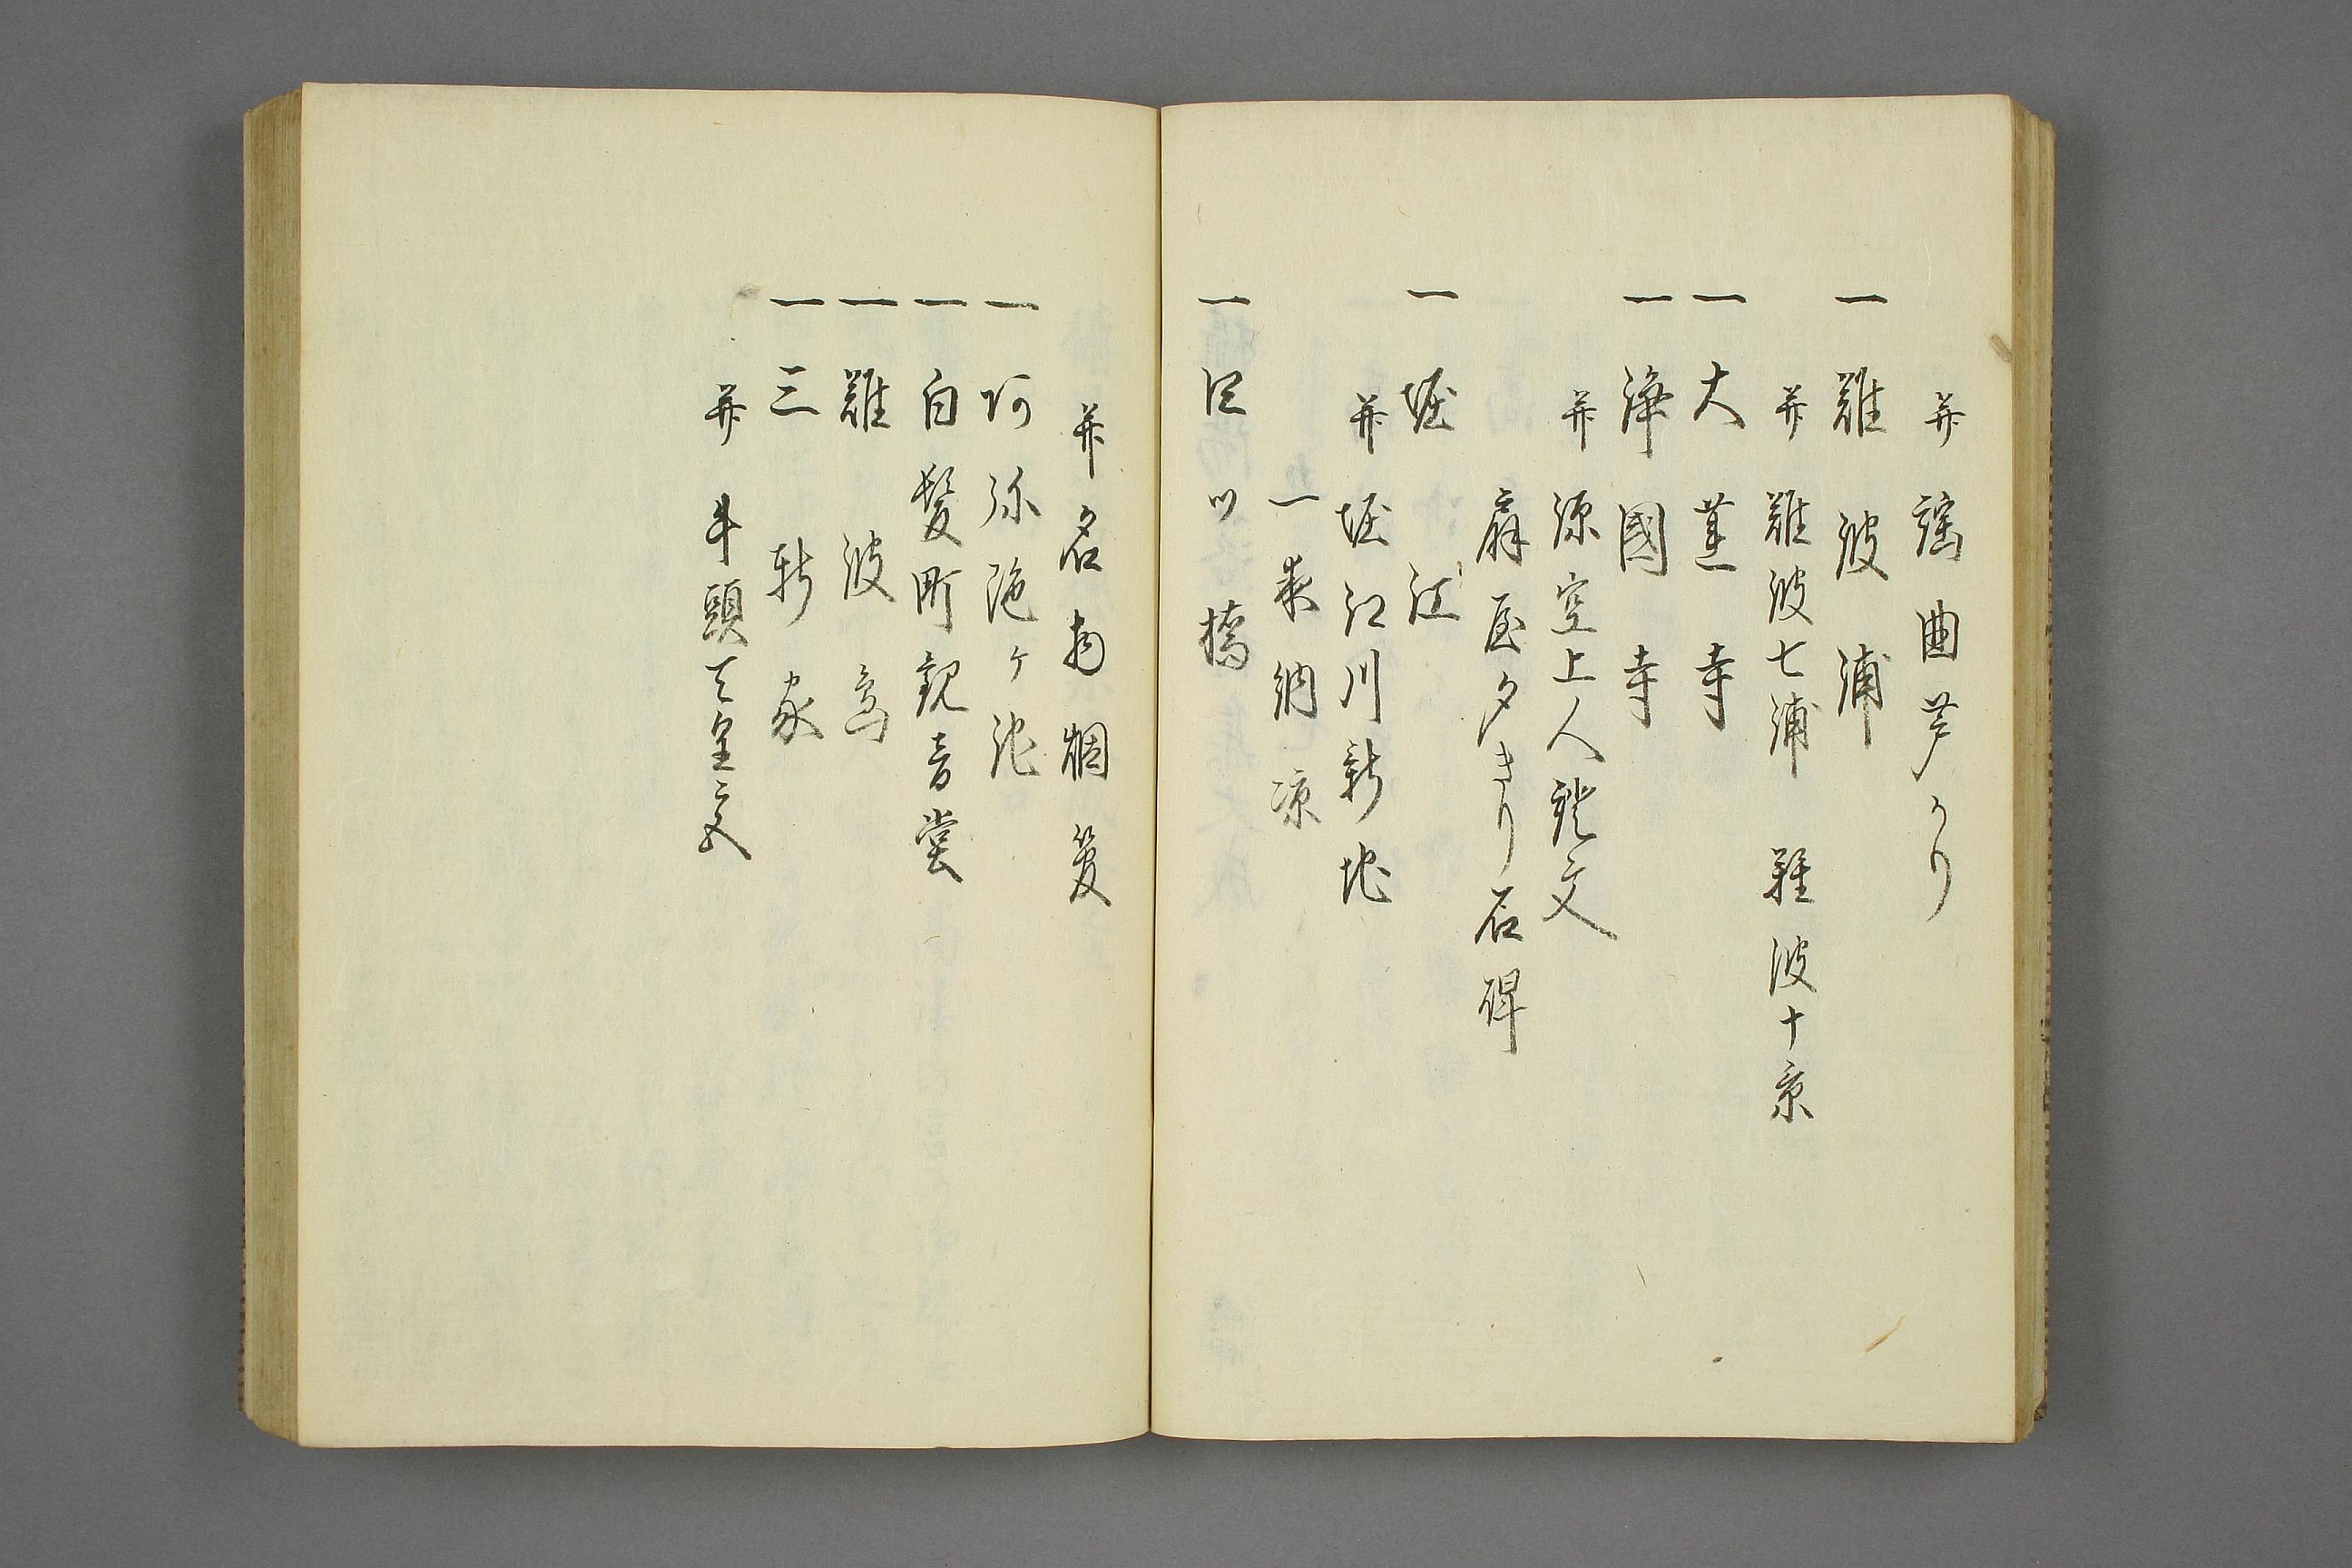 并 謡曲芦かり
一 難波浦
并 難波七浦 難波十景
一 大蓮寺
一 浄國寺
并 源空上人證文
扇屋夕きり石碑
一 堀江
并 堀江川新地
一 納凉
一 四ツ橋
并 名物
一 阿弥陀ヶ池
一 白髪町観音堂
一 難波嶌
一 三軒家
并 牛頭天皇之文